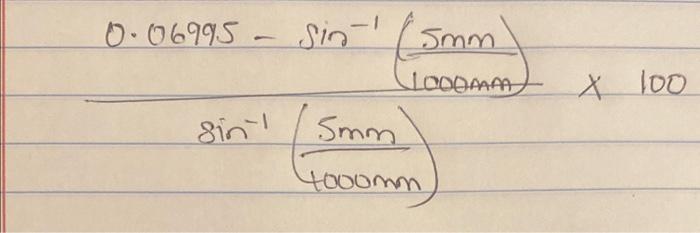 0.06995 - sin⁻¹ (5mm
1000mm) x 100
sin⁻¹ (5mm
1000mm)